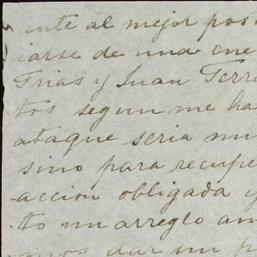 ente al mejor pos
iarse de una ene
Frias y Juan Ferr
tos segun me ha
ataque seria mu
sino para recupe
accion obligada y
to un arreglo am
dar un p